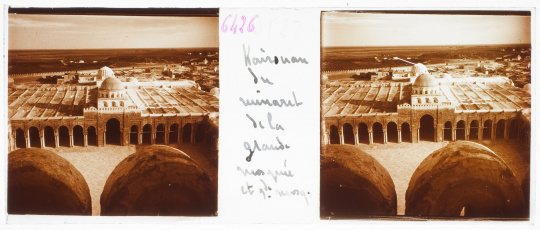 6426
Kairouan
du
minaret
de la
grande
mosquée
et gde mosq.